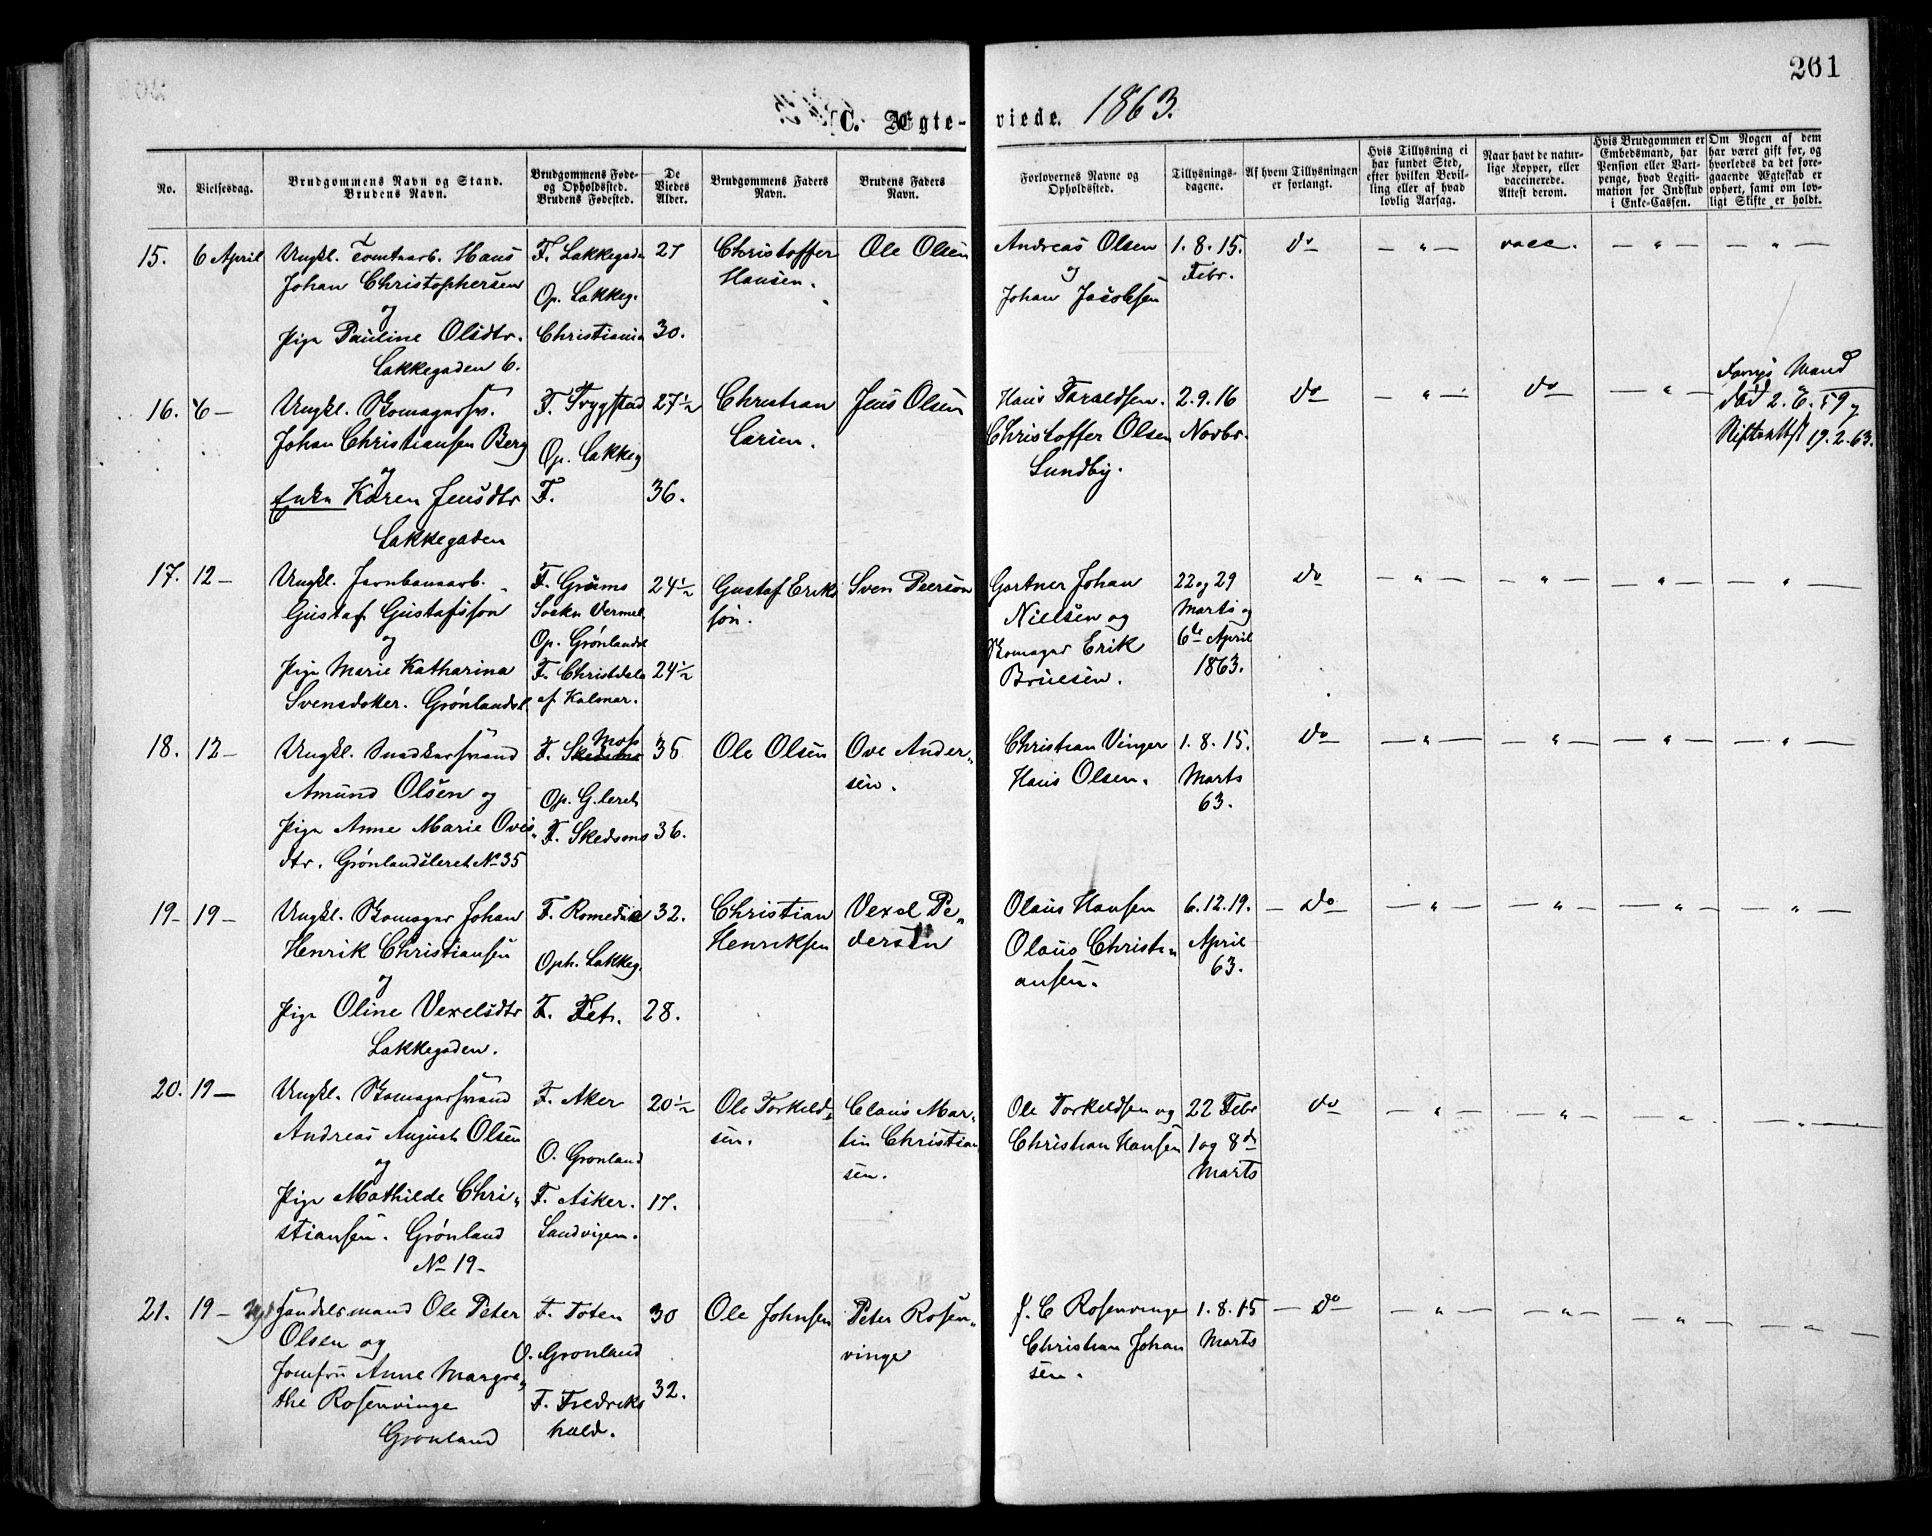 261
C. Ægte- viede. 1863.
No.
Vielsesdag.
Brudgommens Navn og Stand.
Brudens Navn.
Brudgommens Føde-
og Opholdssted.
Brudens Fødested.
De
Viedes
Alder.
Brudgommens Faders
Navn.
Brudens Faders
Navn.
Forlovernes Navne og
Opholdssted.
Tillysnings-
dagene.
Af hvem Tillysningen
er forlangt.
Hvis Tillysning ei
har fundet Sted,
efter hvilken Bevil-
ling eller af hvad
lovlig Aarsag.
Naar havt de natur-
lige Kopper, eller
vaccinerede.
Attest derom.
Hvis Brudgommen er
Embedsmand, har
Pension eller Vart-
penge, hvad Legiti-
mation for Indskud
i Enke-Cassen.
Om Nogen af dem
har været gift før, og
hvorledes da det fore-
gaaende Ægteskab er
ophørt, samt om lov-
ligt Skifte er holdt.
15. 6 April
Ungkl. Tomtearb. Hans
Johan Christophersen
og
Pige Pauline Olsdtr.
Lakkegaden 6.
F. Lakkegaden
Op. Lakkeg.
Christiania
27
30.
Christoffer
Hansen.
Ole Olsen
Andreas Olsen
og
Johan Jacobsen
1. 8. 15.
Febr.
do
— " —
vacc.
— " —
— " —
16. 6 —
Ungkl. Skomagersv.
Johan Christiansen Berg
og
Enke Karen Jensdtr
Lakkegaden
F. Trygstad
Op. Lakkeg
F.
27 1/2
36.
Christian
Larsen.
Jens Olsen
Hans Taraldsen.
Christoffer Olsen
Sundby.
2. 9. 16
Novbr.
do
— " —
do
— " —
Forrige Mand
død 2. 6. 59
Skifteattest 19. 2. 63.
17. 12 —
Ungkl. Jernbanearb.
Gustaf Gustafsson
og
Pige Marie Katharina
Svensdoker. Grønlandsl.
F. Grums
Sockn Vermel.
Op. Grønlandsl
F. Christdala
af Kalmar.
24 1/2
24 1/2
Gustaf Eriks
son.
Sven Peerson
Gartner Johan
Nielsen og
Skomager Erik
Bruesen.
22 og 29
Marts og
6te April
1863.
do
— " —
— " —
— " —
— " —
18. 12 —
Ungkl. Snedkersvend
Amund Olsen og
Pige Anne Marie Oves-
dtr. Grønlandsleret No 35
Moss
F. Skedsmo
Op. G.leret
F. Skedsmo
35
36.
Ole Olsen
Ove Ander-
sen.
Christian Vinger
Hans Olsen.
1. 8. 15.
Marts
63.
do
— " —
— " —
— " —
— " —
19 - 19 —
Ungkl. Skomager Johan
Henrik Christiansen
og
Pige Oline Vexelsdtr
Lakkegaden.
F. Romedal
Oph. Lakkeg.
F. Fet.
32.
28.
Christian
Henriksen
Vexel Pe-
dersen
Olaus Hansen
Olaus Christi-
ansen.
6. 12. 19.
April
63.
— do
— " —
— " —
— " —
— " —
20. 19 —
Ungkl. Skomagersvend
Andreas August Olsen
og
Pige Mathilde Chri-
stiansen. Grønland
No 19 -
F. Aker
O. Gronland
F. Asker.
Sandvigen.
20 1/2
17.
Ole Torkeld-
sen.
Claus Mar-
tin Christian
sen.
Ole Torkeldsen og
Christian Hansen
22 Febr
1 og 8de
Marts
do
— " —
— " —
— " —
— " —
21. 19 — Ugl
Handelsmand Ole Peter
Olsen og
Jomfru Anne Margre-
the Rosenvinge
Grønland
F. Toten
O. Gronland
F. Fredriks
hald.
30
32.
Ole Johnsen
Peter Rosen-
vinge
J. C Rosenvinge
Christian Johan
sen.
1. 8. 15
Marts
— do
— " —
— " —
— " —
— " —